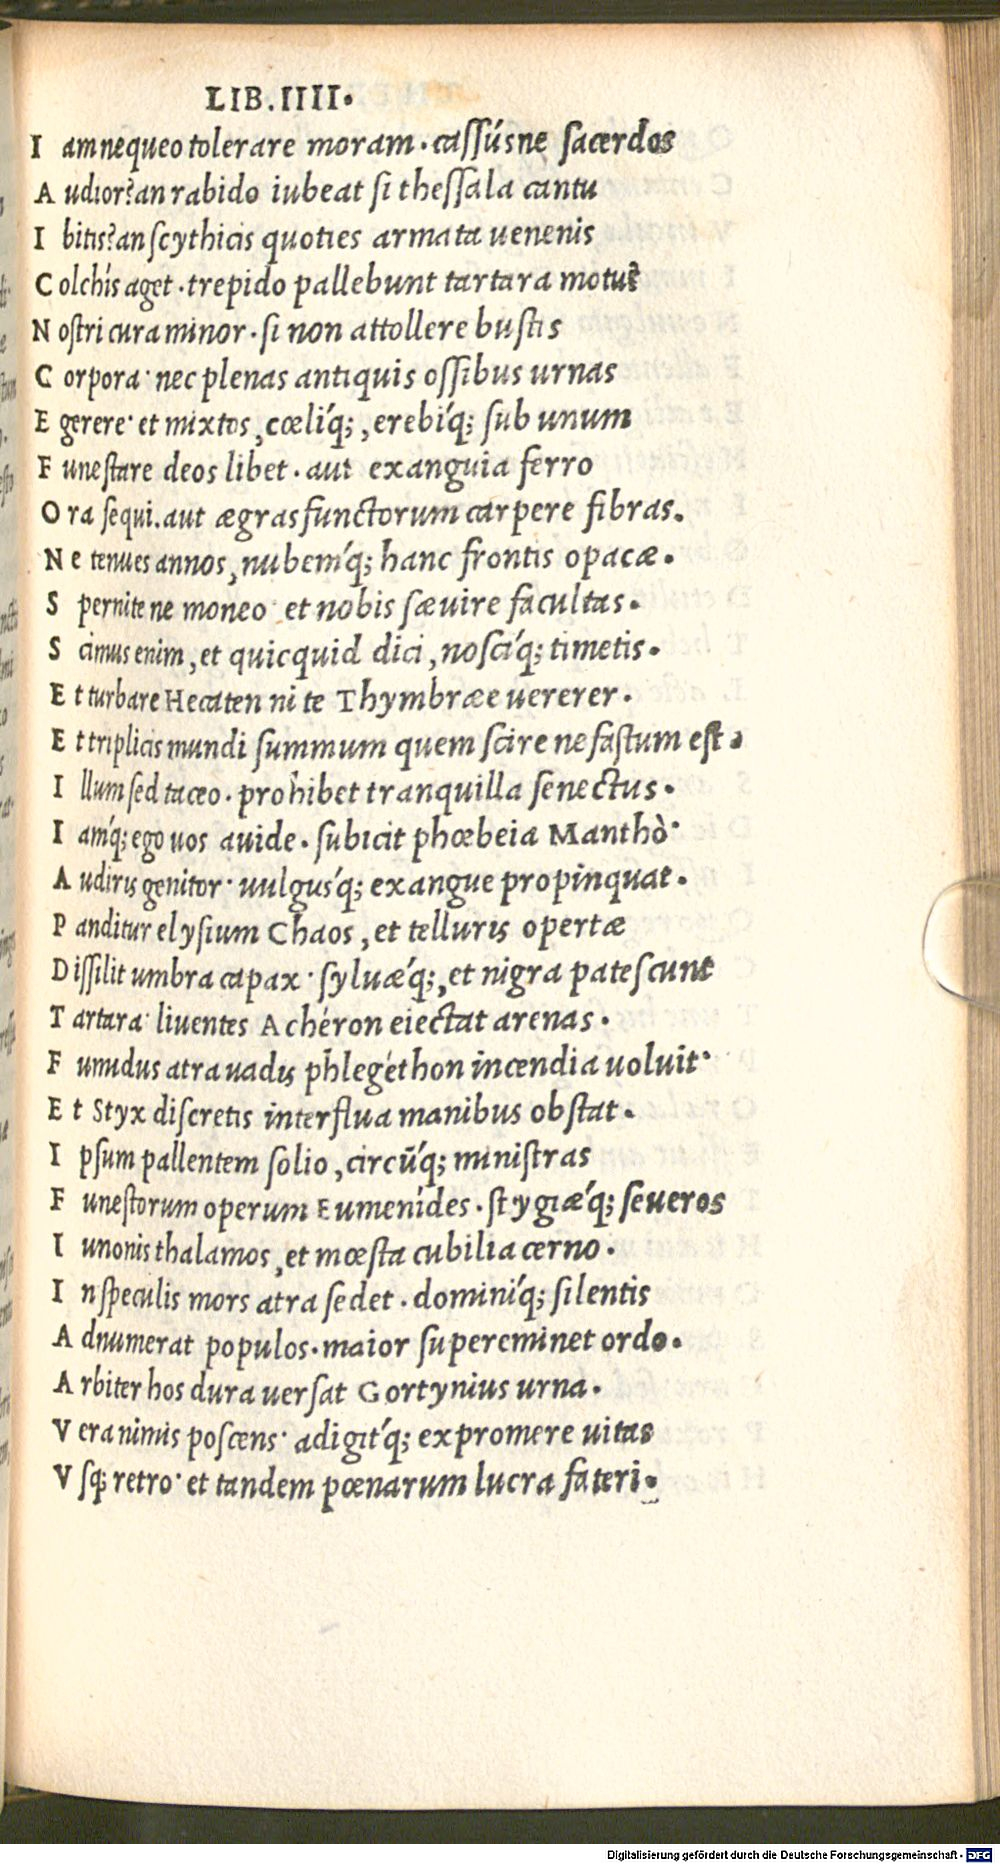 LIB.IIII.
I am nequeo tolerare moram. cassúsne sacerdos
A udior? an rabido iubeat si thessala cantu
I bitis? an scythicis quoties armata uenenis
C olchis aget. trepido pallebunt tartara motu?
N ostri cura minor. si non attollere bustis
C orpora· nec plenas antiquis ossibus urnas
E gerere· et mixtos, cœliq́;, erebiq́; sub unum
F unestare deos libet. aut exanguia ferro
O ra sequi. aut ægras functorum carpere fibras.
N e tenues annos, nubemq́; hanc frontis opacæ.
S pernite ne moneo· et nobis sæuire facultas.
S cimus enim, et quicquid dici, nosciq́; timetis.
E t turbare Hecaten ni te Thymbræe uererer.
E t triplicis mundi summum quem scire nefastum est.
I llum sed taceo. prohibet tranquilla senectus.
I amq́; ego uos auide. subicit phœbeia Manthò·
A udiris genitor· uulgusq́; exangue propinquat.
P anditur elysium Chaos, et telluris opertæ
D issilit umbra capax· syluæq́;, et nigra patescunt
T artara· liuentes Achéron eiectat arenas.
F umidus atra uadis phlegéthon incendia uoluit·
E t Styx discretis interflua manibus obstat.
I psum pallentem solio, circūq́; ministras
F unestorum operum Eumenídes. stygiæq́; seueros
I unonis thalamos, et mœsta cubilia cerno.
I n speculis mors atra sedet. dominiq́; silentis
A dnumerat populos. maior supereminet ordo.
A rbiter hos dura uersat Gortynius urna.
V era nimis poscens· adigitq́; expromere uitas
V sq; retro· et tandem pœnarum lucra fateri.
Digitalisierung gefördert durch die Deutsche Forschungsgemeinschaft - DFG